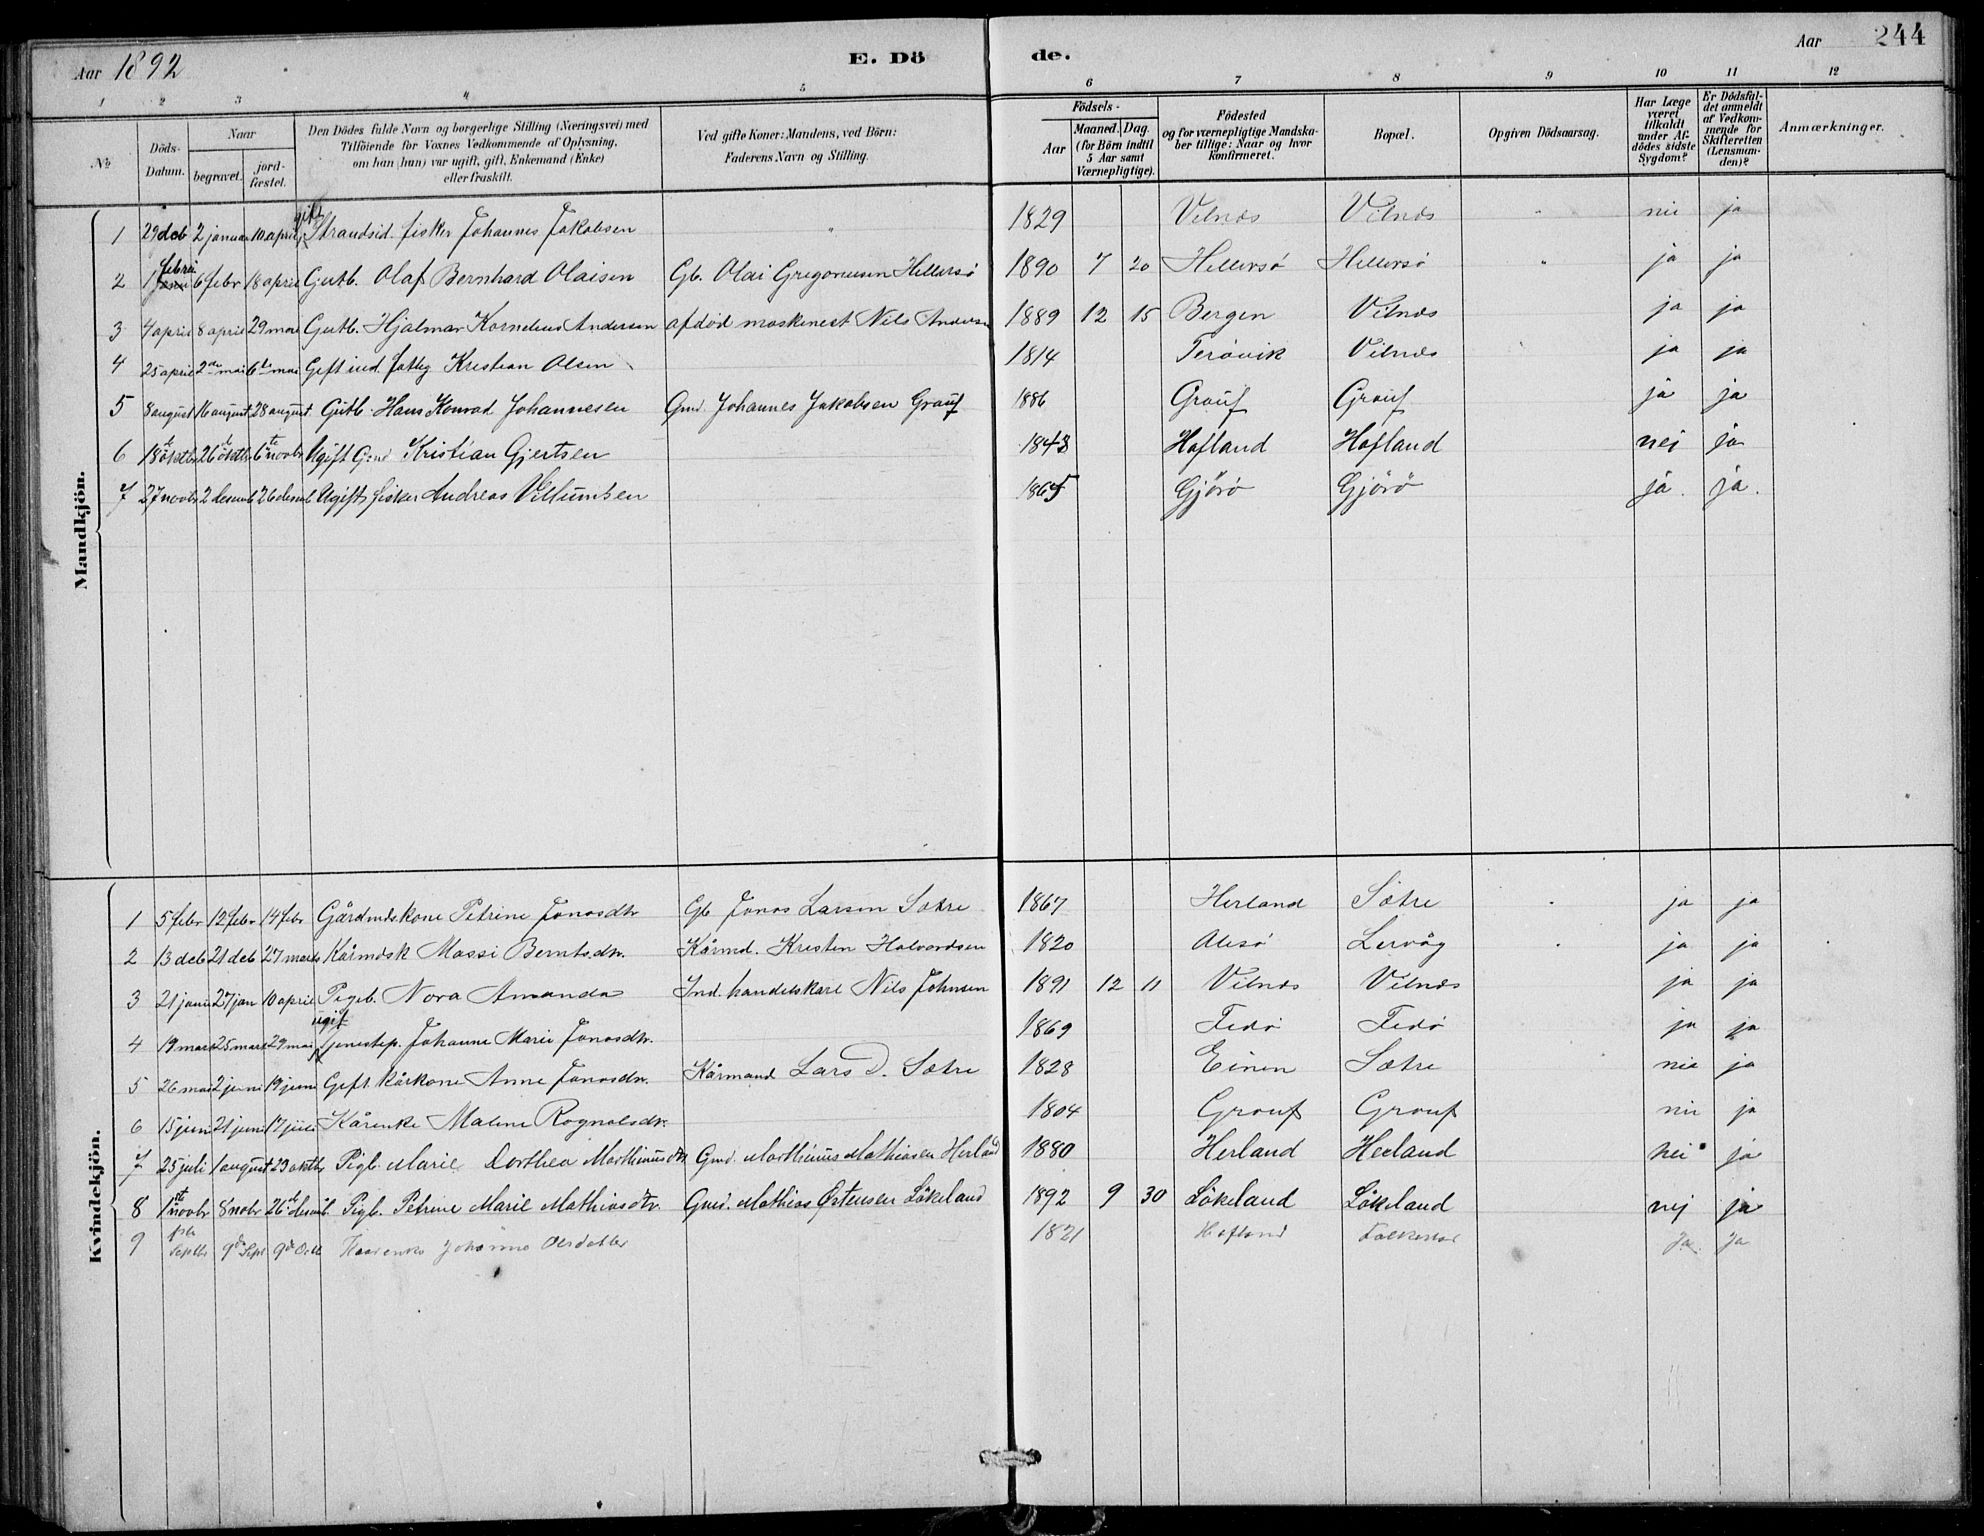 Aar 1892
E. Dö
de.
Aar
244
1 2 3 4 5 6 7 8 9 10 11 12
No
Döds-Datum.
Naar
begravet.
jord-fæstet.
Den Dödes fulde Navn og borgerlige Stilling (Næringsvei) med
Tilföiende for Voxnes Vedkommende af Oplysning,
om han (hun) var ugift, gift, Enkemand (Enke)
eller fraskilt.
Ved gifte Koner: Mandens, ved Börn:
Faderens Navn og Stilling.
Födsels-
Aar
Maaned. Dag.
(for Börn indtil
5 Aar samt
Værnepligtige).
Födested
og for værnepligtige Mandska-
ber tillige: Naar og hvor
konfirmeret.
Bopæl.
Opgiven Dödsaarsag.
Har Læge
været
tilkaldt
under Af-
dödes sidste
Sygdom?
Er Dödsfal-
det anmeldt
af Vedkom-
mende for
Skifteretten
(Lensman-
den)?
Anmærkninger.
Mandkjön.
gift
1 29 deb 2 januar 10 april Strandsid. fisker Johannes Jakobsen " 1829 Vilnæs Vilnæs " nei ja
2 1 febr 6 febr 18 april Gutb. Olaf Bernhard Olaisen Gb. Olai Gregoriusen Hellersö 1890 7 20 Hellersö Hellersö " ja ja
3 4 april 8 april 29 mai Gutb. Hjalmar Kornelius Andersen afdöd maskinest Nils Andersen 1889 12 15 Bergen Vilnæs ja ja
4 25 april 2de mai 6te mai Gift ind. fattig Kristian Olsen 1814 Terövik Vilnæs ja ja
5 8 august 16 august 28 august Gutb. Hans Konrad Johannesen Gmd. Johannes Jakobsen Grouf 1886 Grouf Grouf ja ja
6 18 oktbr 26 oktbr 6te novbr Ugift Gmd Kristian Gjertsen 1843 Hofland Hofland nej ja
7 27 novbr 2 desemb 26 desemb Ugift fisker Andreas Villumsen 1865 Gjörö Gjörö ja. ja.
Kvindekjön.
1 5 febr 12 febr 14 febr Gårdmdskone Petrine Jonasdtr Gb. Jonas Larsen Sætre 1867 Herland Sætre ja ja
2 13 deb 21 deb 27 mars Kårmdsk Massi Berntsdtr. Kårmd. Kristen Halvordsen 1820 Alesö Lervåg ja ja
3 21 janu 27 jan 10 april Pigeb. Nora Amanda Ind. handelskarl Nils Johnsen 1891 12 11 Vilnæs Vilnæs ja ja
ugift
4 19 mars 25 mars 29 mai tjenestep. Johanne Marie Jonasdtr. 1869 Fedö Fedö ja ja
5 26 mai 2 juni 19 juni Gift kårkone Anne Jonasdtr. Kårmand Lars D. Sætre 1828 Einen Sætre nei ja
6 15 juni 21 juni 17 juli Kårenke Malene Rognalsdtr. 1804 Grouf Grouf nei ja
7 25 juli 1 august 23 oktbr Pigb. Marie Dorthea Marthinusdtr Gmd. Marthinus Mathiasen Herland 1880 Herland Herland nei ja
8 1ste novbr 8 nobr 26de desemb. Pigb. Petrine Marie Mathiasdtr. Gmd. Mathias Östensen Lökeland 1892 9 30 Lökeland Lökeland nej ja
9 Septbr 9de Sept 9de Octb Kaarenke Johanne Olsdatter 1821 Hofland Ja. Ja